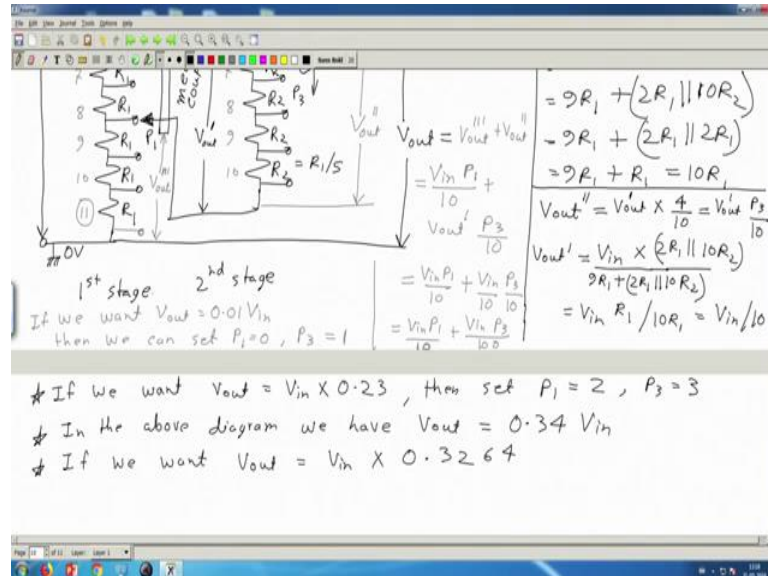 File Edit View Journal Tools Options Help
R₁
8
R₁
P₁
9
R₁
10
R₁
11
R₁
0V
Vout'''
Vout'
8
R₂
P₃
9
R₂
10
R₂ = R₁/5
Vout''
1st stage 2nd stage
If we want Vout = 0.01 Vin
then we can set P₁=0, P₃ = 1
Vout = Vout''' + Vout''
= Vin P₁/10 +
Vout' P₃/10
= Vin P₁/10 + Vin/10 P₃/10
= Vin P₁/10 + Vin P₃/100
= 9R₁ + (2R₁ || 10R₂)
= 9R₁ + (2R₁ || 2R₁)
= 9R₁ + R₁ = 10R₁
Vout'' = Vout' × 4/10 = Vout' P₃/10
Vout' = Vin × (2R₁ || 10R₂) / 9R₁ + (2R₁ || 10R₂)
= Vin R₁/10R₁ = Vin/10
* If we want Vout = Vin × 0.23, then set P₁ = 2, P₃ = 3
* In the above diagram we have Vout = 0.34 Vin
* If we want Vout = Vin × 0.3264